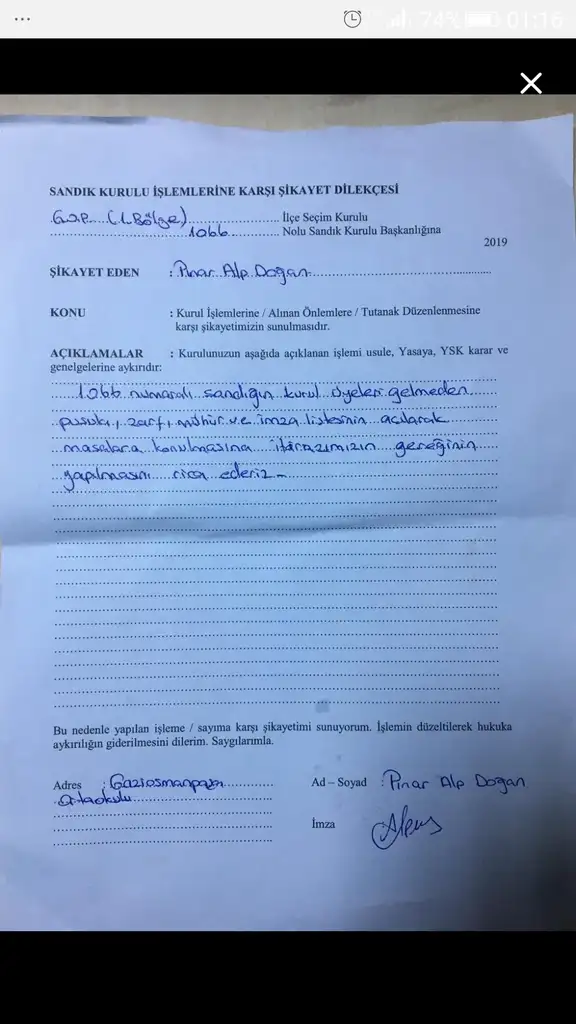 ... 74% 01:16
SANDIK KURULU İŞLEMLERİNE KARŞI ŞİKAYET DİLEKÇESİ
G.O.P. (1. Bölge) İlçe Seçim Kurulu
1066 Nolu Sandık Kurulu Başkanlığına
2019
ŞİKAYET EDEN : Pınar Alp Doğan
KONU : Kurul İşlemlerine / Alınan Önlemlere / Tutanak Düzenlenmesine
karşı şikayetimizin sunulmasıdır.
AÇIKLAMALAR : Kurulunuzun aşağıda açıklanan işlemi usule, Yasaya, YSK karar ve
genelgelerine aykırıdır:
1066 numaralı sandığın kurul üyeleri gelmeden
pusula, zarf, mühür ve imza listesinin açılarak
masalara konulmasına itirazımızın gereğinin
yapılmasını rica ederiz
Bu nedenle yapılan işleme / sayıma karşı şikayetimi sunuyorum. İşlemin düzeltilerek hukuka
aykırılığın giderilmesini dilerim. Saygılarımla.
Adres : Gaziosmanpaşa
Ortaokulu
Ad – Soyad : Pınar Alp Doğan
İmza